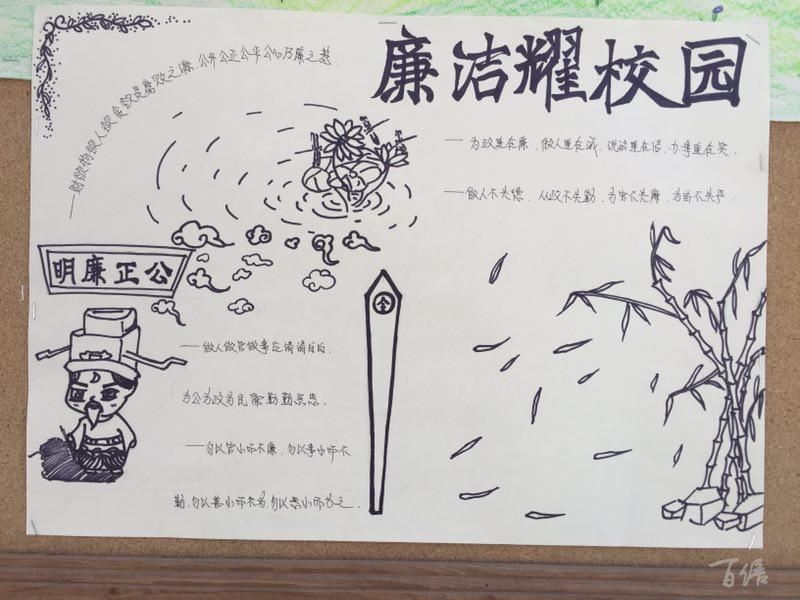 廉洁耀校园
——财欲物欲人欲贪欲是腐败之源.公开公正公平公心乃廉之基.
——为政重在廉，做人重在诚，说话重在信，办事重在实。
——做人不失德，从政不失勤，为官不失廉，为 不失严。
公正廉明
令
——做人做官做事应清清白白，
为公为政为民需勤勤恳恳。
——勿以官小而不廉，勿以事小而不
勤，勿以善小而不为，勿以恶小而为之。